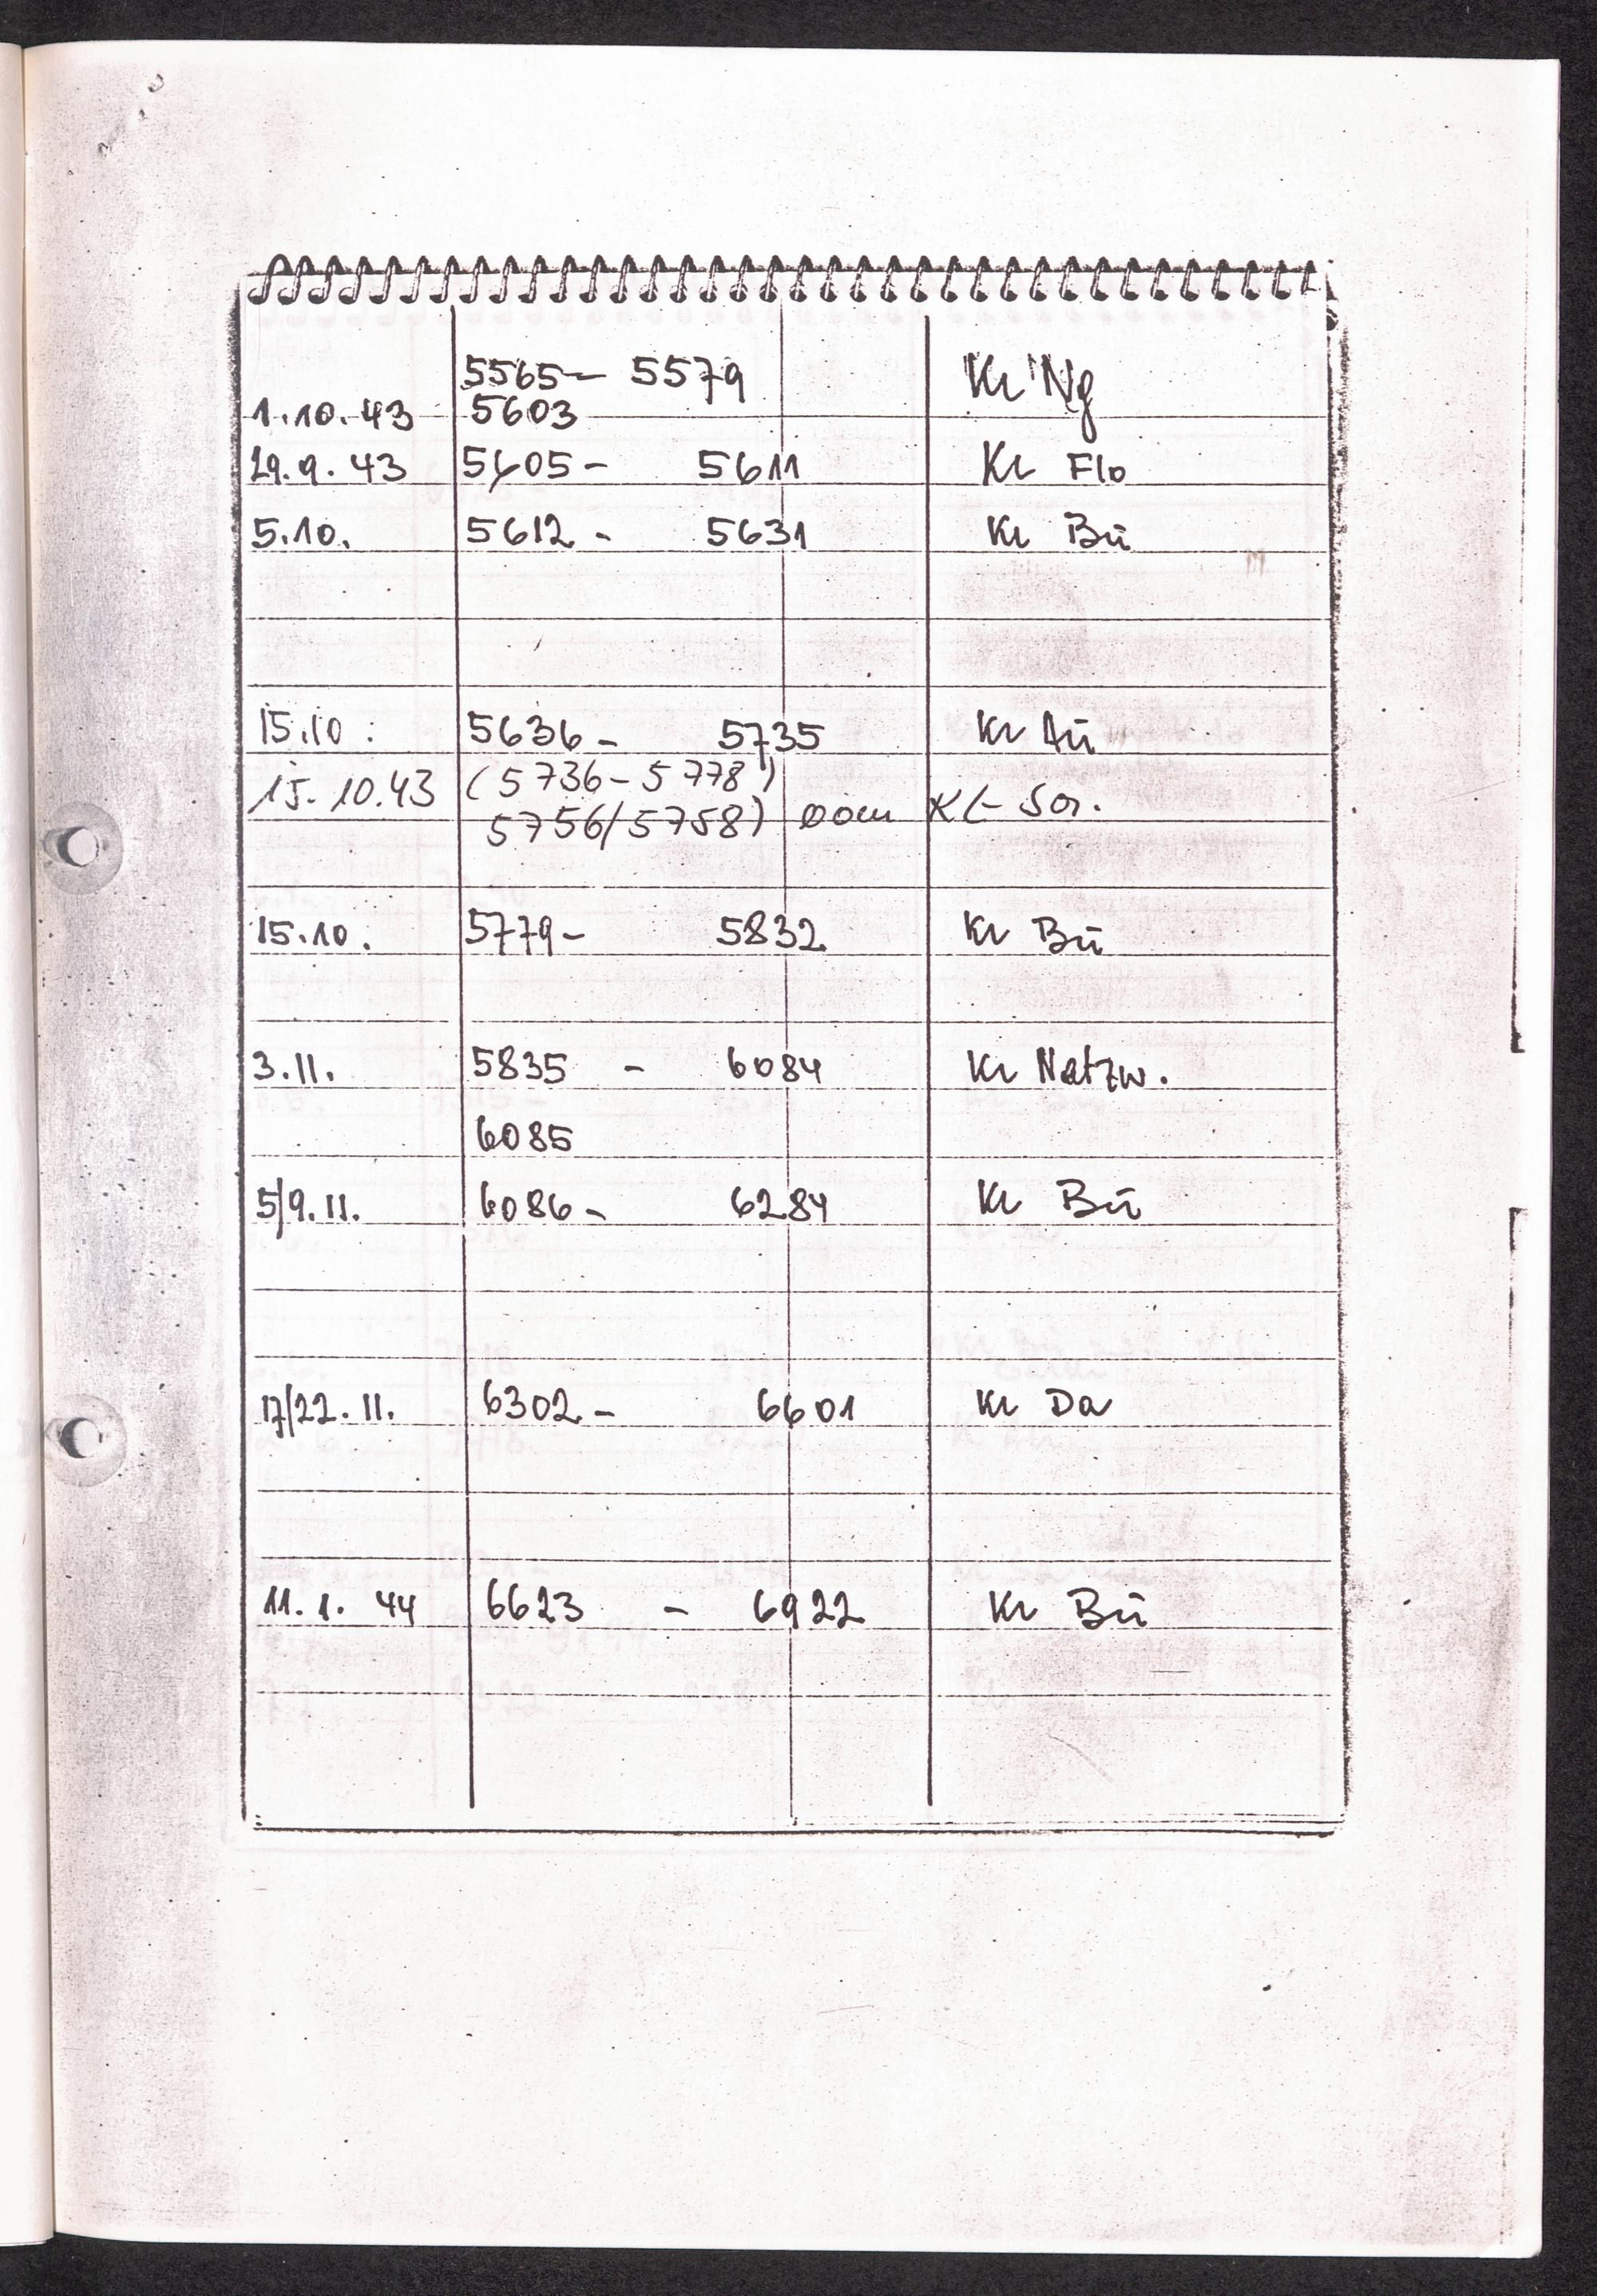 5565 - 5579 Kl Ng
1.10.43 5603
29.9.43 5605 - 5611 Kl Flo
5.10. 5612 - 5631 Kl Bū
15.10. 5636 - 5735 Kl Au
15.10.43 (5736 - 5778)
5756/5758) vom KL-
15.10. 5779 - 5832 Kl Bū
3.11. 5835 - 6084 Kl Natzw.
6085
5/9.11. 6086 - 6284 Kl Bū
17/22.11. 6302 - 6601 Kl Da
11.1.44 6623 - 6922 Kl Bū